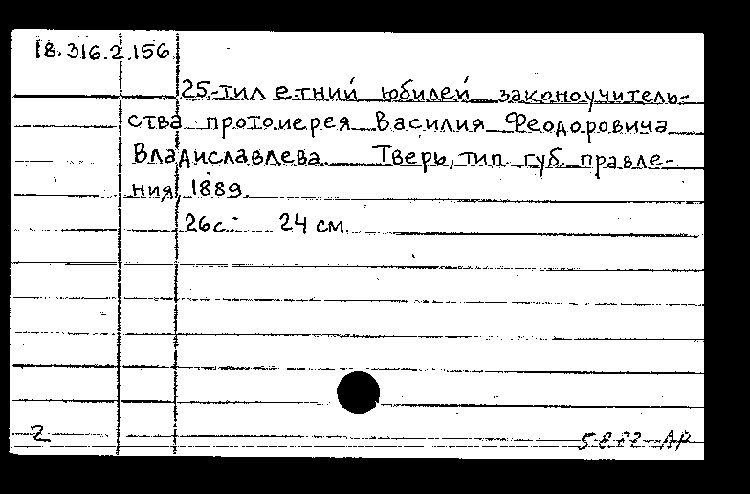 18.316.2.156
25-тилетний юбилей законоучитель-
ства протоиерея Василия Феодоровича
Владиславлева. Тверь, тип. губ. правле-
ния, 1889.
26с. 24 см.
2